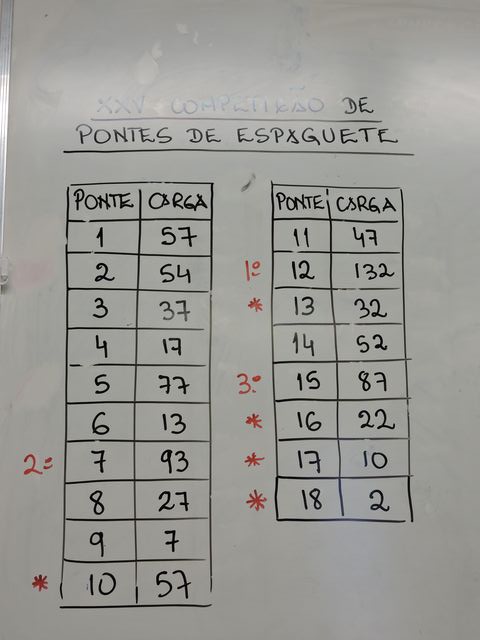 XXV COMPETIÇÃO DE
PONTES DE ESPAGUETE
PONTE CARGA
1 57
2 54
3 37
4 17
5 77
6 13
2º 7 93
8 27
9 7
* 10 57
PONTE CARGA
11 47
1º 12 132
* 13 32
14 52
3º 15 87
* 16 22
* 17 10
* 18 2